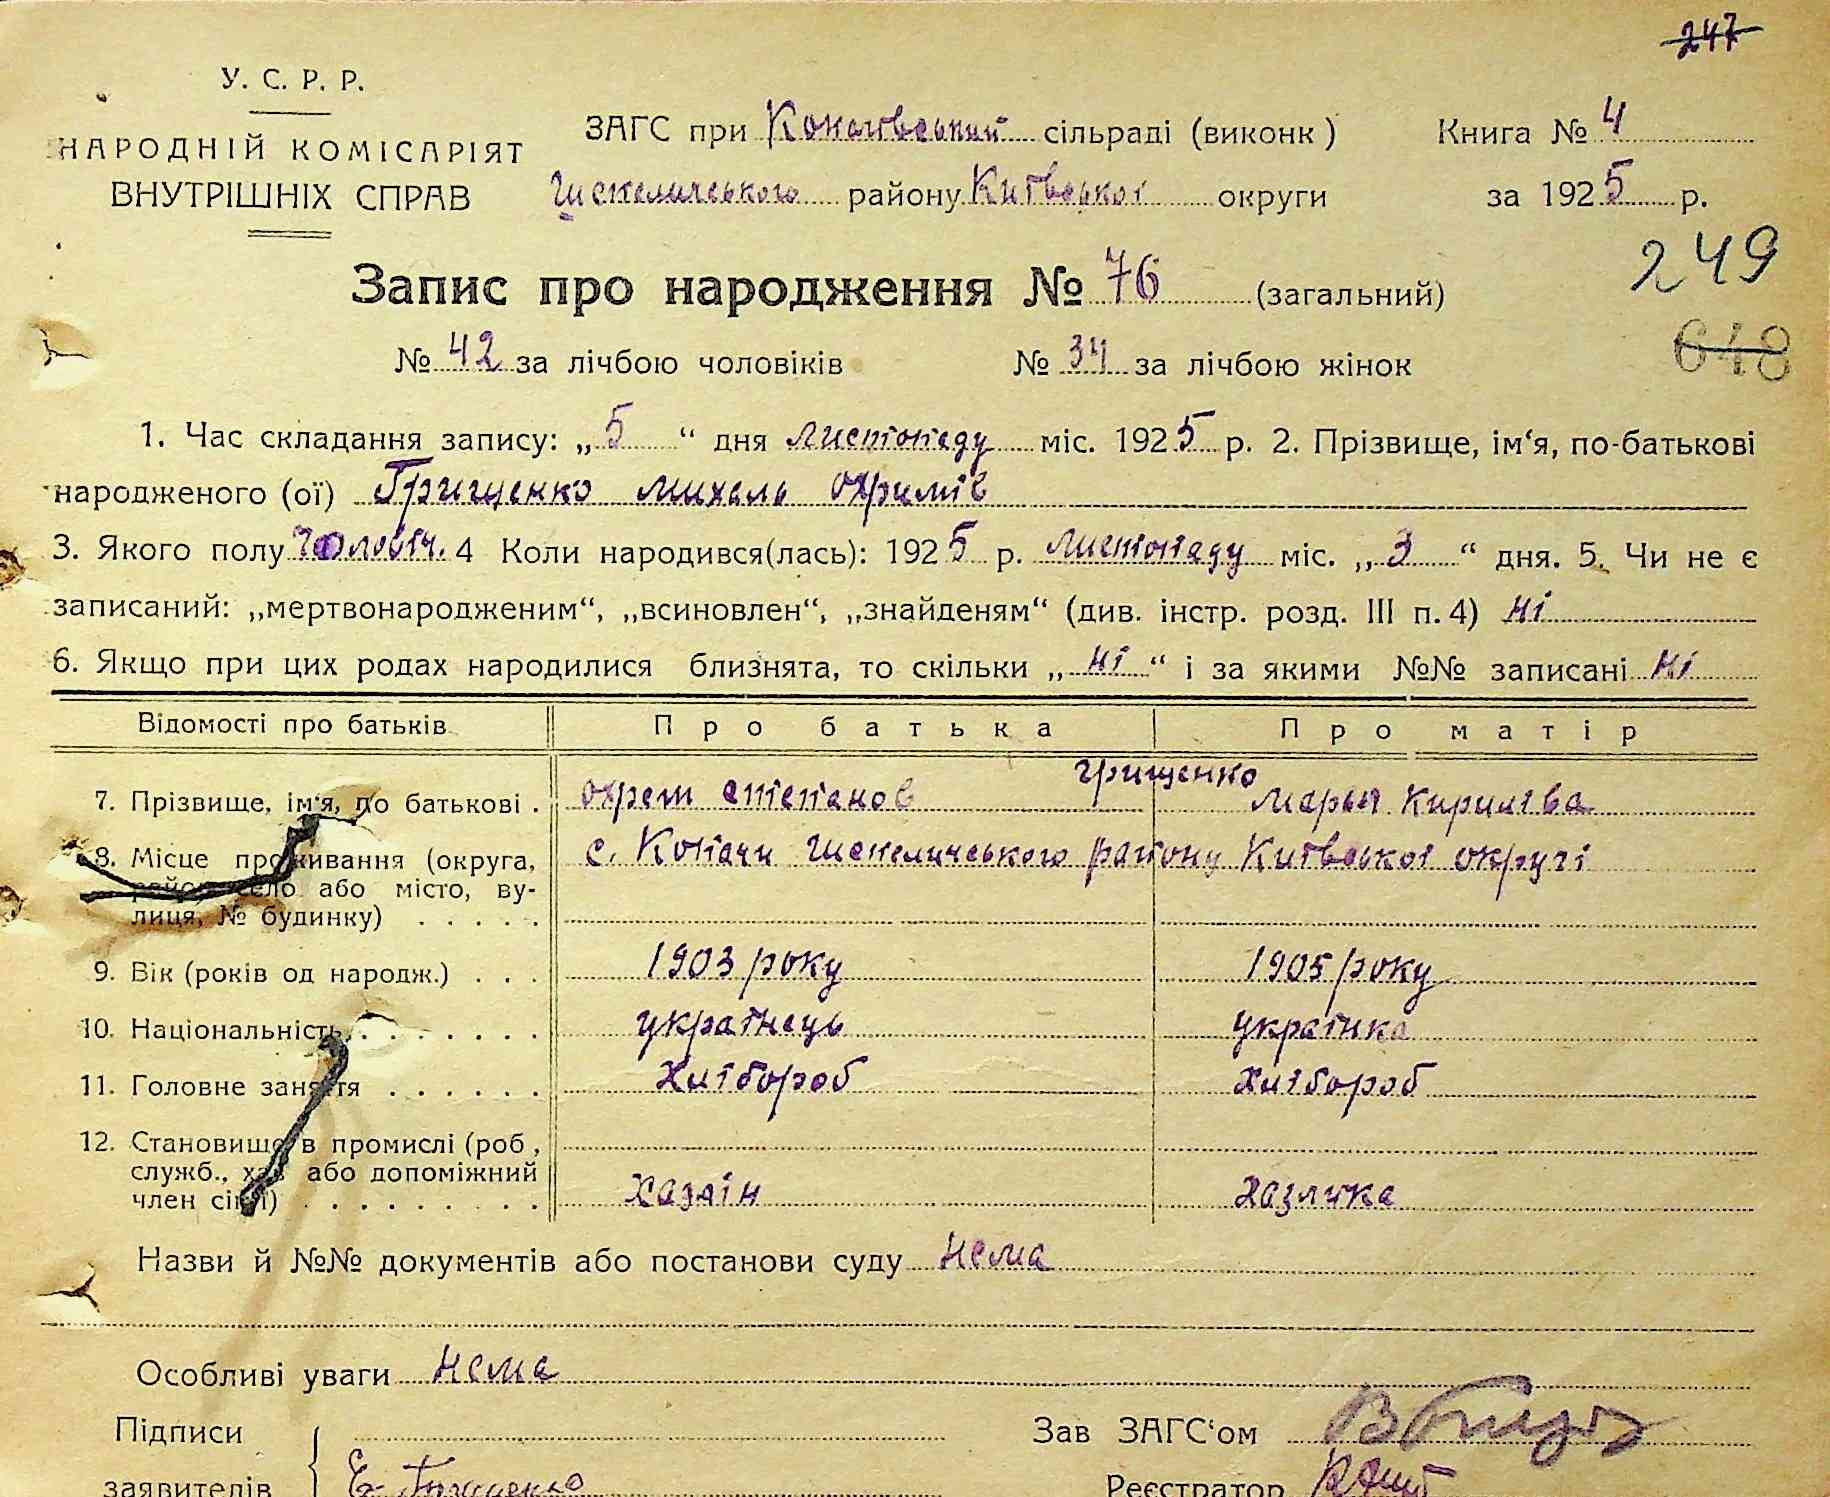 247
У. С. Р. Р.
НАРОДНІЙ КОМІСАРІЯТ
ВНУТРІШНІХ СПРАВ
ЗАГС при Копачівський сільраді (виконк ) Книга № 4
Шепелицського району Київської округи за 1925 р.
249
Запис про народження № 76 (загальний)
648
№ 42 за лічбою чоловіків № 34 за лічбою жінок
1. Час складання запису: „ 5 “ дня листопаду міс. 1925 р. 2. Прізвище, ім‘я, по-батькові
народженого (ої) Грищенко михаль охримів
3. Якого полу чоловіч. 4 Коли народився(лась): 1925 р. листопаду міс. „ 3 “ дня. 5. Чи не є
записаний: „мертвонародженим“, „всиновлен“, „знайденям“ (див. інстр. розд. III п. 4) ні
6. Якщо при цих родах народилися близнята, то скільки „ ні “ і за якими №№ записані ні
Відомості про батьків Про батька Про матір
грищенко
7. Прізвище, ім‘я, по батькові . охрем степанов марья Кирилева
8. Місце проживання (округа, с. Копачи Шепеличського району Київської округі
район, село або місто, ву-
лиця, № будинку) . . . . .
9. Вік (років од народж.) . . . 1903 року 1905 року
10. Національність . . . . . . . українець українка
11. Головне заняття . . . . . . хлібороб хлібороб
12. Становище в промислі (роб ,
служб., хаз або допоміжний
член сім'ї) . . . . . . . . . хазяін хазяйка
Назви й №№ документів або постанови суду нема
Особливі уваги нема
Підписи Зав ЗАГС‘ом
заявителів Грищенко Реєстратор